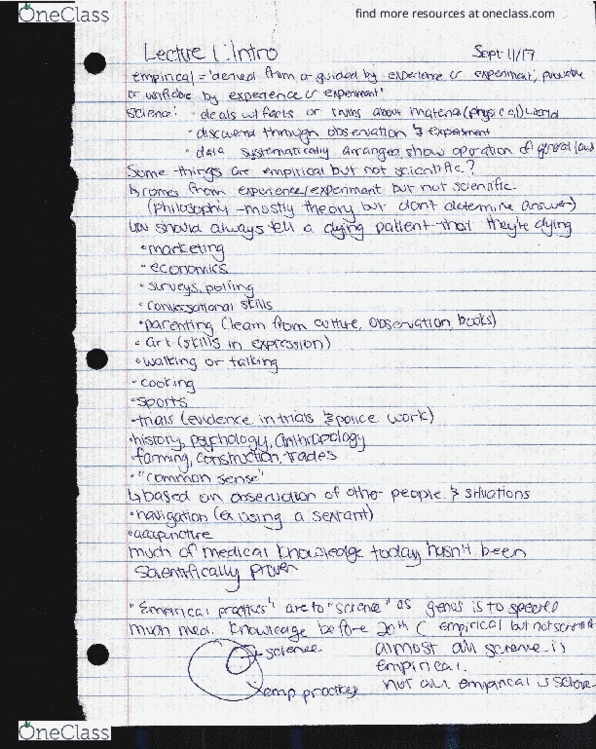 OneClass
find more resources at oneclass.com
Lecture 1: Intro
Sept 11/17
empirical = 'derived from or guided by experience or experiment; provable
or verifiable by experience or experiment'
Science: · deals w/ facts or truths about material (physical) world
· discovered through observation & experiment
· data systematically arranged, show operation of general laws
Some things are empirical but not scientific?
↳ comes from experience/experiment but not scientific.
(philosophy - mostly theory but don't determine answer)
↳ should always tell a dying patient that they're dying
· marketing
· economics
· surveys, polling
· conversational skills
· parenting (learn from culture, observation, books)
· art (skills in expression)
· walking or talking
· cooking
· sports
· trials (evidence in trials & police work)
· history, psychology, anthropology
· farming, construction, trades
· "common sense"
↳ based on observation of other people & situations
· navigation (ex using a sextant)
· acupuncture
much of medical knowledge today hasn't been
scientifically proven
· "Empirical practices" are to "science" as genus is to species
much med. knowledge before 20th C empirical but not scientific
science
almost all science is
empirical.
emp practices
not all empirical is science
OneClass